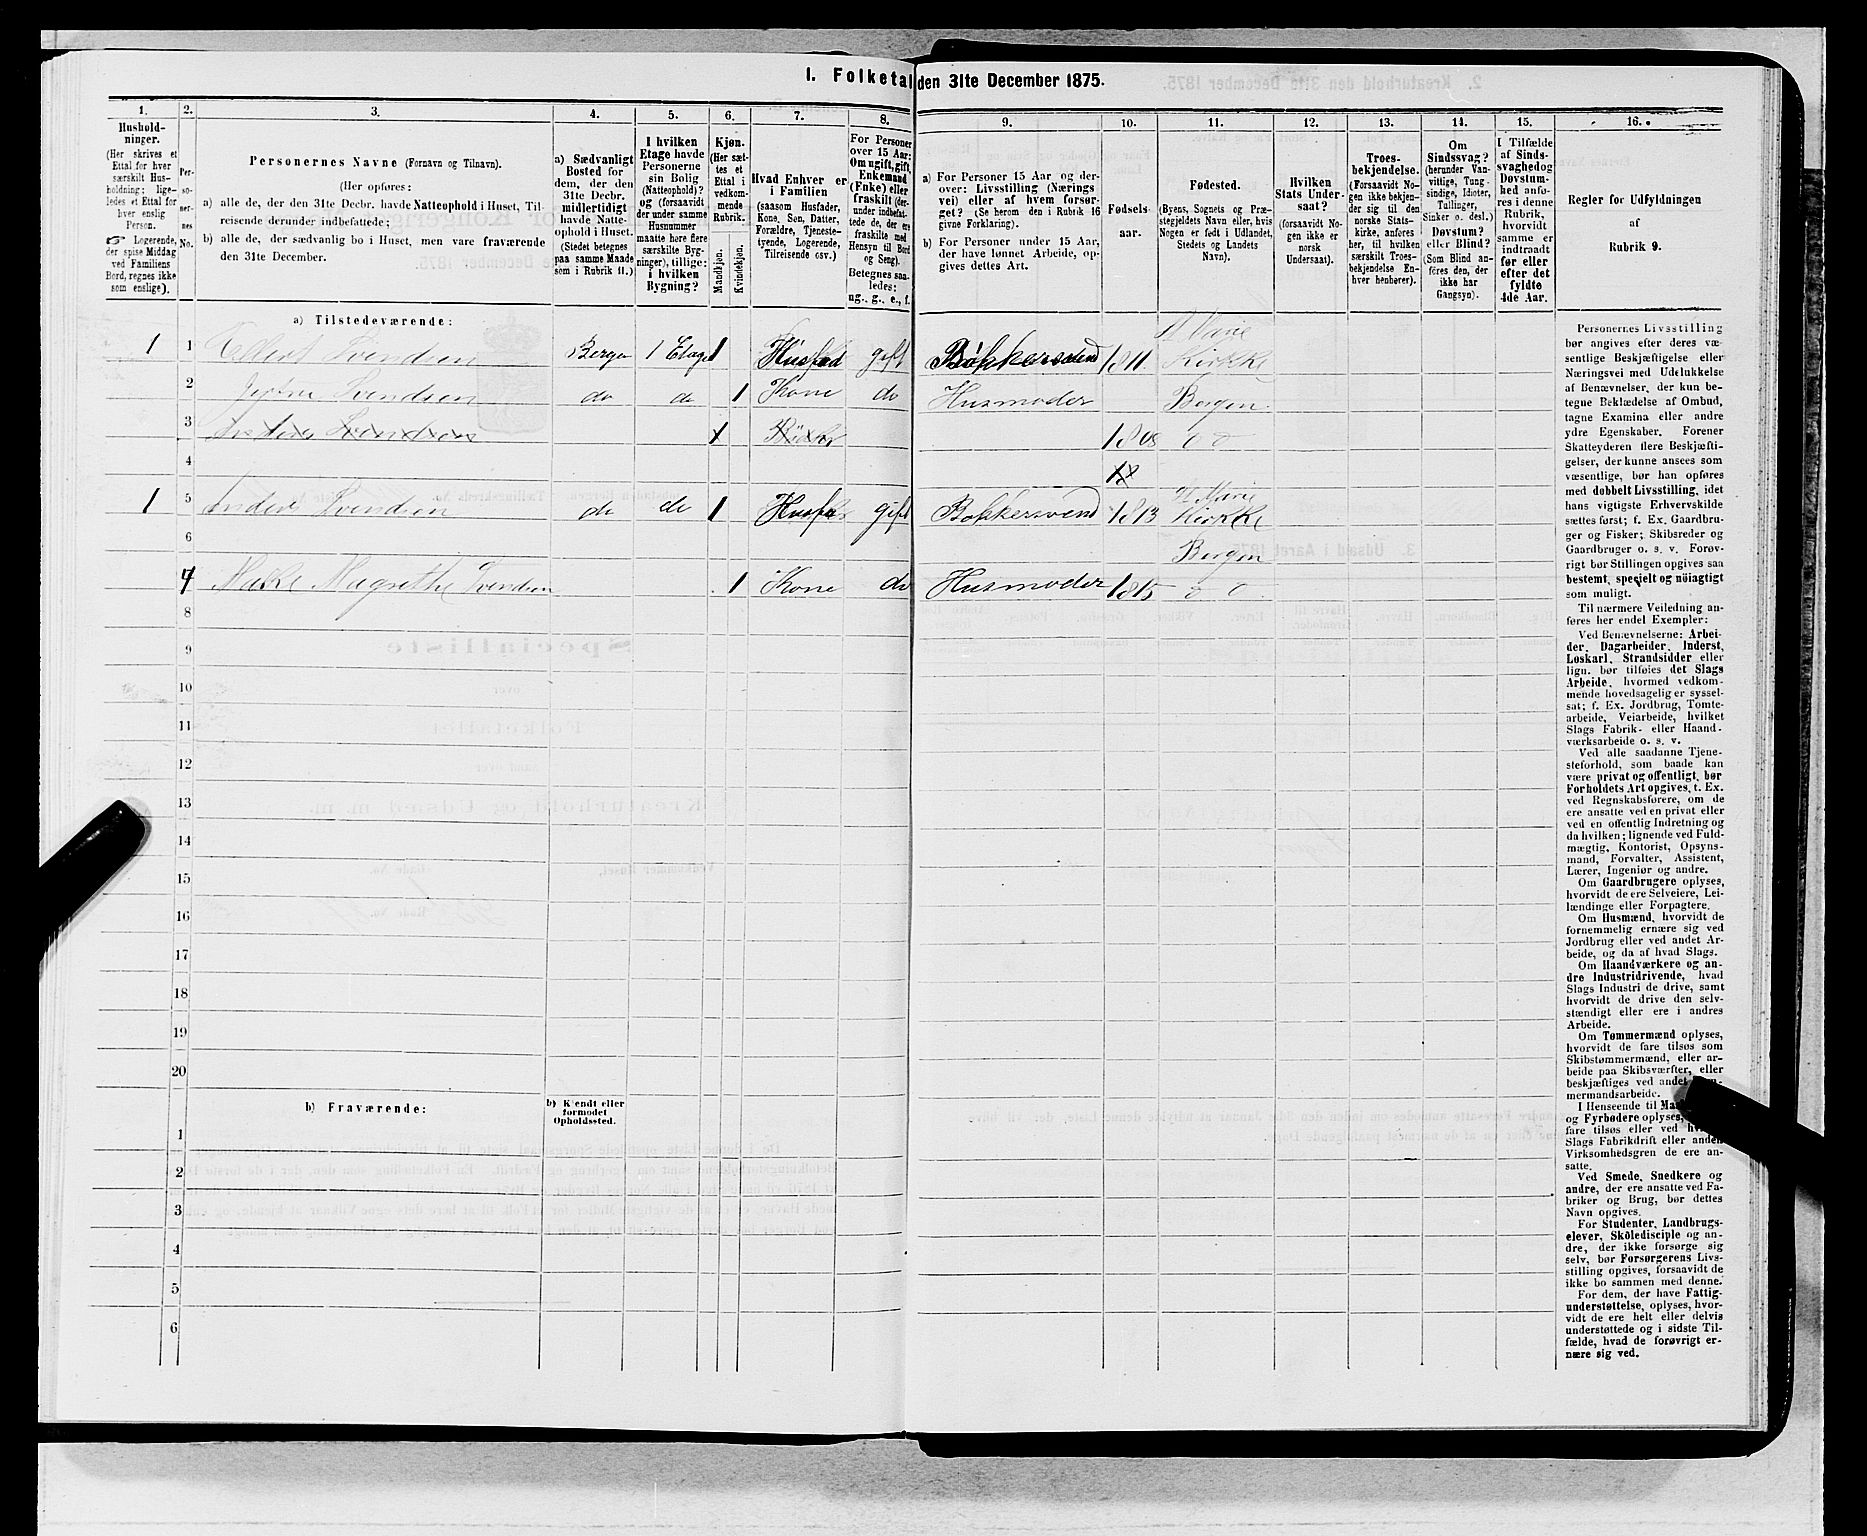 I. Folketal den 31te December 1875.
1.
Hushold-
ninger.
(Her skrives et
Ettal for hver
særskilt Hus-
holdning; lige-
ledes et Ettal for
hver enslig
Person.
☞ Logerende,
der spise Middag
ved Familiens
Bord, regnes ikke
som enslige).
2.
Per-
so-
ner-
nes
No.
3.
Personernes Navne (Fornavn og Tilnavn).
(Her opføres:
a) alle de, der den 31te Decbr. havde Natteophold i Huset, Til-
reisende derunder indbefattede;
b) alle de, der sædvanlig bo i Huset, men vare fraværende
den 31te December.
4.
a) Sædvanligt
Bosted for
dem, der den
31te Decbr.
midlertidigt
havde Natte-
ophold i Huset.
(Stedet betegnes
paa samme Maade
som i Rubrik 11.)
5.
I hvilken
Etage havde
Personerne
sin Bolig
(Natteophold)?
og (forsaavidt
der under samme
Husnummer
maatte høre flere
særskilte Byg-
ninger), tillige:
i hvilken
Bygning?
6.
Kjøn.
(Her sæt-
tes et
Ettal i
vedkom-
mende
Rubrik.
Mandkjøn.
Kvindekjøn.
7.
Hvad Enhver er
i Familien
(saasom Husfader,
Kone, Søn, Datter,
Forældre, Tjeneste-
tyende, Logerende,
Tilreisende osv.)
8.
For Personer
over 15 Aar:
Om ugift, gift,
Enkemand
(Enke) eller
fraskilt (der-
under indbefat-
tede de, der ere
fraskilte med
Hensyn til Bord
og Seng).
Betegnes saa-
ledes:
ug., g., e., f.
9.
a) For Personer 15 Aar og der-
over: Livsstilling (Nærings
vei) eller af hvem forsør-
get? (Se herom den i Rubrik 16
givne Forklaring).
b) For Personer under 15 Aar,
der have lønnet Arbeide, op-
gives dettes Art.
10.
Fødsels-
aar.
11.
Fødested.
(Byens, Sognets og Præ-
stegjeldets Navn eller, hvis
Nogen er født i Udlandet,
Stedets og Landets
Navn).
12.
Hvilken
Stats Under-
saat?
(forsaavidt No-
gen ikke er
norsk
Undersaat).
13.
Troes-
bekjendelse.
(Forsaavidt No-
gen ikke bekjen-
der sig til den
norske Stats-
kirke, anføres
her, til hvilken
særskilt Troes-
bekjendelse En-
hver henhører).
14.
Om
Sindssvag?
(herunder Van-
vittige, Tung-
sindige, Idioter,
Tullinger,
Sinker o. desl.)
Døvstum?
eller Blind?
(Som Blind an-
føres den, der
ikke har
Gangsyn).
15.
I Tilfælde
af Sinds-
svaghed og
Døvstum-
hed anfø-
res i denne
Rubrik,
hvorvidt
samme er
indtraadt
før eller
efter det
fyldte
4de Aar.
16.
Regler for Udfyldningen
af
Rubrik 9.
a) Tilstedeværende:
1 1 Ellert Svendsen Bergen 1 Etage 1 Husfad gift Bøkkersvend 1811 St Marie Kirkke
2 Svendsen do do 1 Kone do Husmoder Bergen
3 Svendsen 1
4
1 5 Anders Svendsen do do 1 Husfar gift Bøkkersvend 1813 St Marie Kirkke
6 Bergen
7 Magrethe Svendsen 1 Kone do Husmoder 1815
8
9
10
11
12
13
14
15
16
17
18
19
20
b) Fraværende:
b) Kjendt eller
formodet
Opholdssted.
1
2
3
4
5
6
Personernes Livsstilling
bør angives efter deres væ-
sentlige Beskjæftigelse eller
Næringsvei med Udelukkelse
af Benævnelser, der kun be-
tegne Beklædelse af Ombud,
tagne Examina eller andre
ydre Egenskaber. Forener
Skatteyderen flere Beskjæfti-
gelser, der kunne ansees som
væsentlige, bør han opføres
med dobbelt Livsstilling, idet
hans vigtigste Erhvervskilde
sættes først; f. Ex. Gaardbru-
ger og Fisker; Skibsreder og
Gaardbruger o. s. v. Forøv-
rigt bør Stillingen opgives saa
bestemt, specielt og nøiagtigt
som muligt.
Til nærmere Veiledning an-
føres her endel Exempler:
Ved Benævnelserne: Arbei-
der, Dagarbeider, Inderst,
Løskarl, Strandsidder eller
lign. bør tilføies det Slags
Arbeide, hvormed vedkom-
mende hovedsagelig er syssel-
sat; f. Ex. Jordbrug, Tomte-
arbeide, Veiarbeide, hvilket
Slags Fabrik- eller Haand-
værksarbeide o. s. v.
Ved alle saadanne Tjene-
steforhold, som baade kan
være privat og offentligt, bør
Forholdets Art opgives, t. Ex.
ved Regnskabsførere, om de
ere ansatte ved en privat eller
ved en offentlig Indretning og
da hvilken; lignende ved Fuld-
mægtig, Kontorist, Opsyns-
mand, Forvalter, Assistent,
Lærer, Ingeniør og andre.
Om Gaardbrugere oplyses,
hvorvidt de ere Selveiere, Lei-
lændinge eller Forpagtere.
Om Husmænd, hvorvidt de
fornemmelig ernære sig ved
Jordbrug eller ved andet Ar-
beide, og da af hvad Slags.
Om Haandværkere og an-
dre Industridrivende, hvad
Slags Industri de drive, samt
hvorvidt de drive den selv-
stændigt eller ere i andres
Arbeide.
Om Tømmermænd oplyses,
hvorvidt de fare tilsøs som
Skibstømmermænd, eller ar-
beide paa Skibsværfter, eller
beskjæftiges ved andet
mermandsarbeide.
I Henseende til
og Fyrbødere oplyses,
fare tilsøs eller ved
Slags Fabrikdrift eller anden
Virksomhedsgren de ere an-
satte.
Ved Smede, Snedkere og
andre, der ere ansatte ved Fa-
briker og Brug, bør dettes
Navn opgives.
For Studenter, Landbrugs-
elever, Skoledisciple og an-
dre, der ikke forsørge sig
selv, bør Forsørgerens Livs-
stilling opgives, forsaavidt de
ikke bo sammen med denne.
For dem, der have Fattig-
understøttelse, oplyses, hvor-
vidt de ere helt eller delvis
understøttede og i sidste Til-
fælde, hvad de forøvrigt er-
nære sig ved.